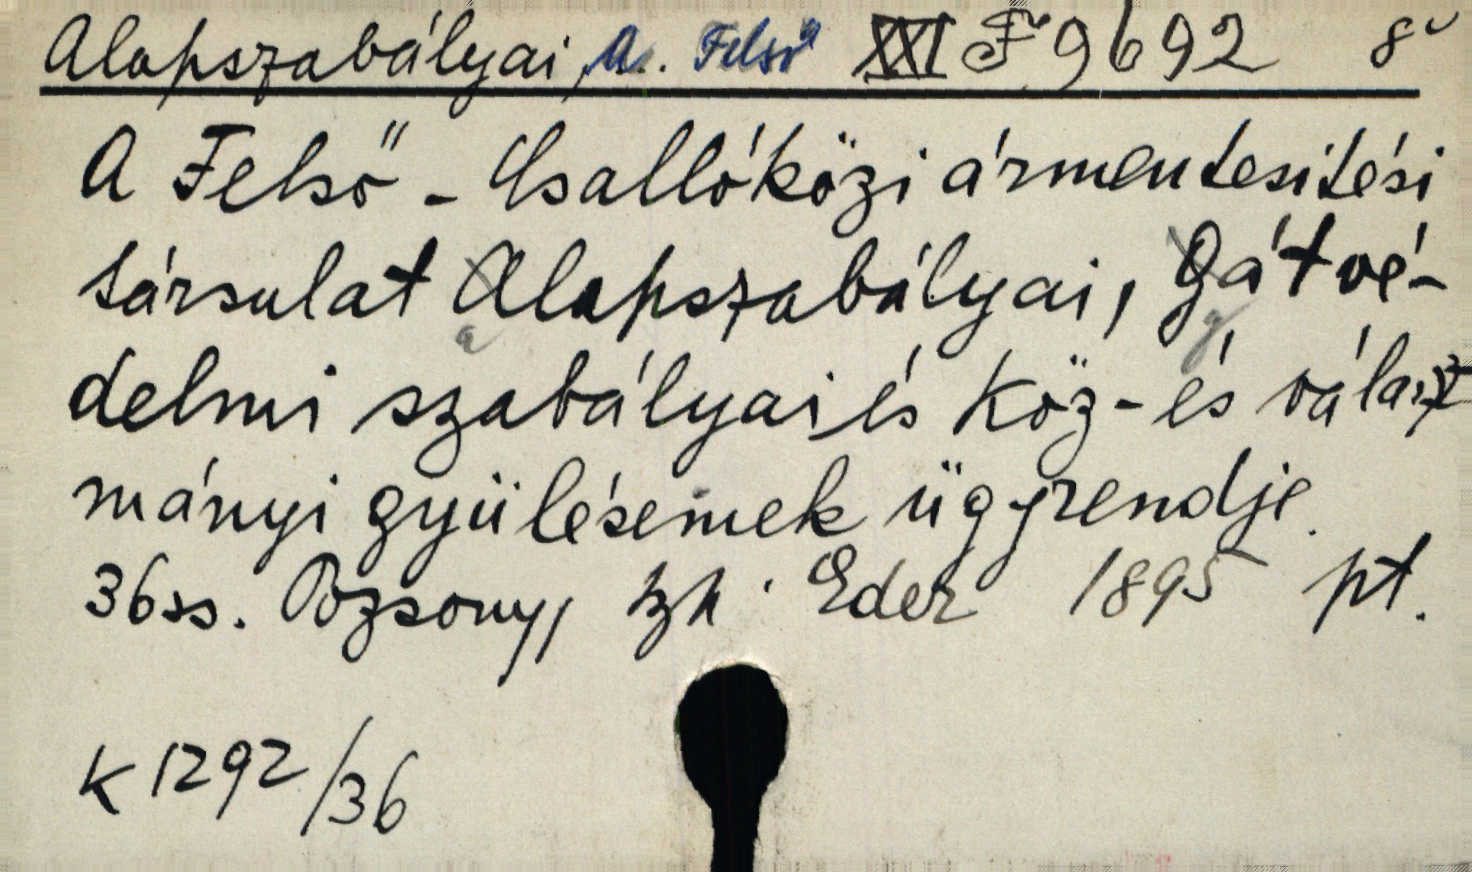 Alapszabályai, A. Felső XXI F 9692 8°
A Felső - Csallóközi ármentesítési
társulat alapszabályai, gátvé-
delmi szabályai és köz- és választ
mányi gyülésemek ügyrendje.
36ss. Pozsony, Eder 1895 pt.
K 1292/36